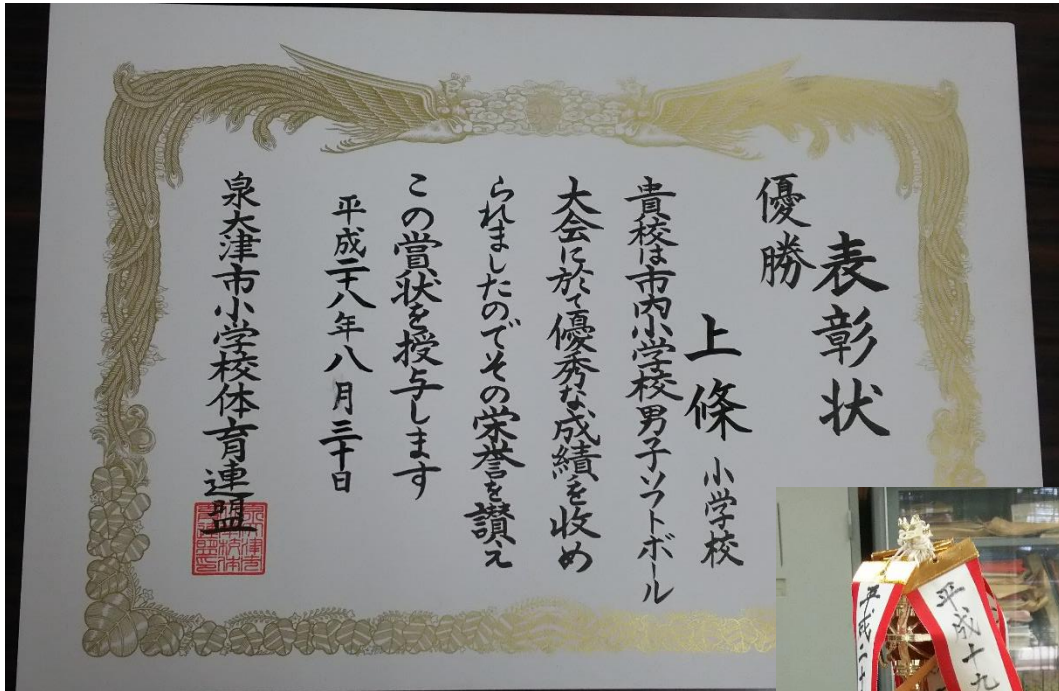 表彰状
優勝
上條 小学校
貴校は市内小学校男子ソフトボール
大会に於て優秀な成績を収め
られましたのでその栄誉を讃え
この賞状を授与します
平成二十八年八月三十日
泉大津市小学校体育連盟
平成二十
平成十九